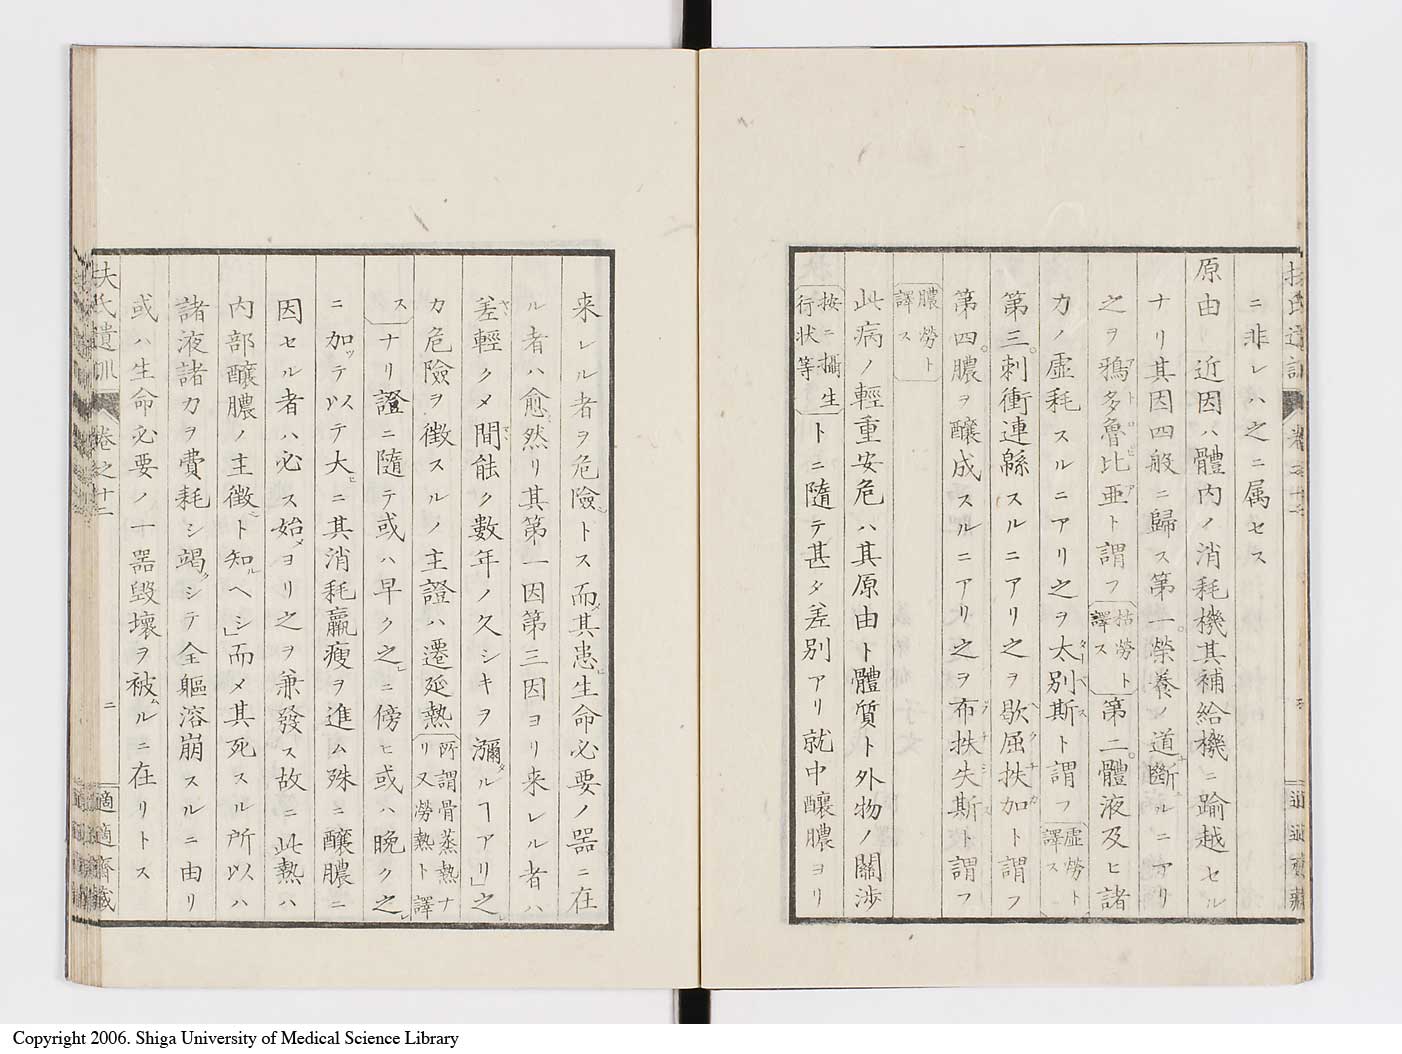 ニ非レハ之ニ属セス
原由 近因ハ體内ノ消耗機其補給機ニ踰越セル
ナリ其因四般ニ歸ス第一榮養ノ道斷ルニアリ
之ヲ鴉多魯比亜ト謂フ枯勞ト譯ス第二體液及ヒ諸
力ノ虚耗スルニアリ之ヲ太別斯ト謂フ虚勞ト譯ス
第三刺衝連緜スルニアリ之ヲ歇屈扶加ト謂フ
第四膿ヲ醸成スルニアリ之ヲ布扶失斯ト謂フ
膿勞ト譯ス
此病ノ輕重安危ハ其原由ト體質ト外物ノ關渉
按ニ攝生行状等トニ隨テ甚タ差別アリ就中釀膿ヨリ
来レル者ヲ危險トス而其患生命必要ノ噐ニ在
ル者ハ愈然リ其第一因第三因ヨリ来レル者ハ
差輕クメ間能ク数年ノ久シキヲ瀰ルヿアリ」之
カ危險ヲ徴スルノ主證ハ遷延熱所謂骨蒸熱ナリ又勞熱ト譯
スナリ證ニ隨テ或ハ早ク之ニ傍ヒ或ハ晩ク之
ニ加ッテ以テ大ニ其消耗羸瘦ヲ進ム殊ニ釀膿ニ
因セル者ハ必ス始ヨリ之ヲ兼發ス故ニ此熱ハ
内部釀膿ノ主徴ト知ヘシ」而メ其死スル所以ハ
諸液諸力ヲ費耗シ竭シテ全軀溶崩スルニ由リ
或ハ生命必要ノ一噐毀壞ヲ被ルニ在リトス
扶氏遺訓 卷之十二 二 適適齋藏
Copyright 2006. Shiga University of Medical Science Library